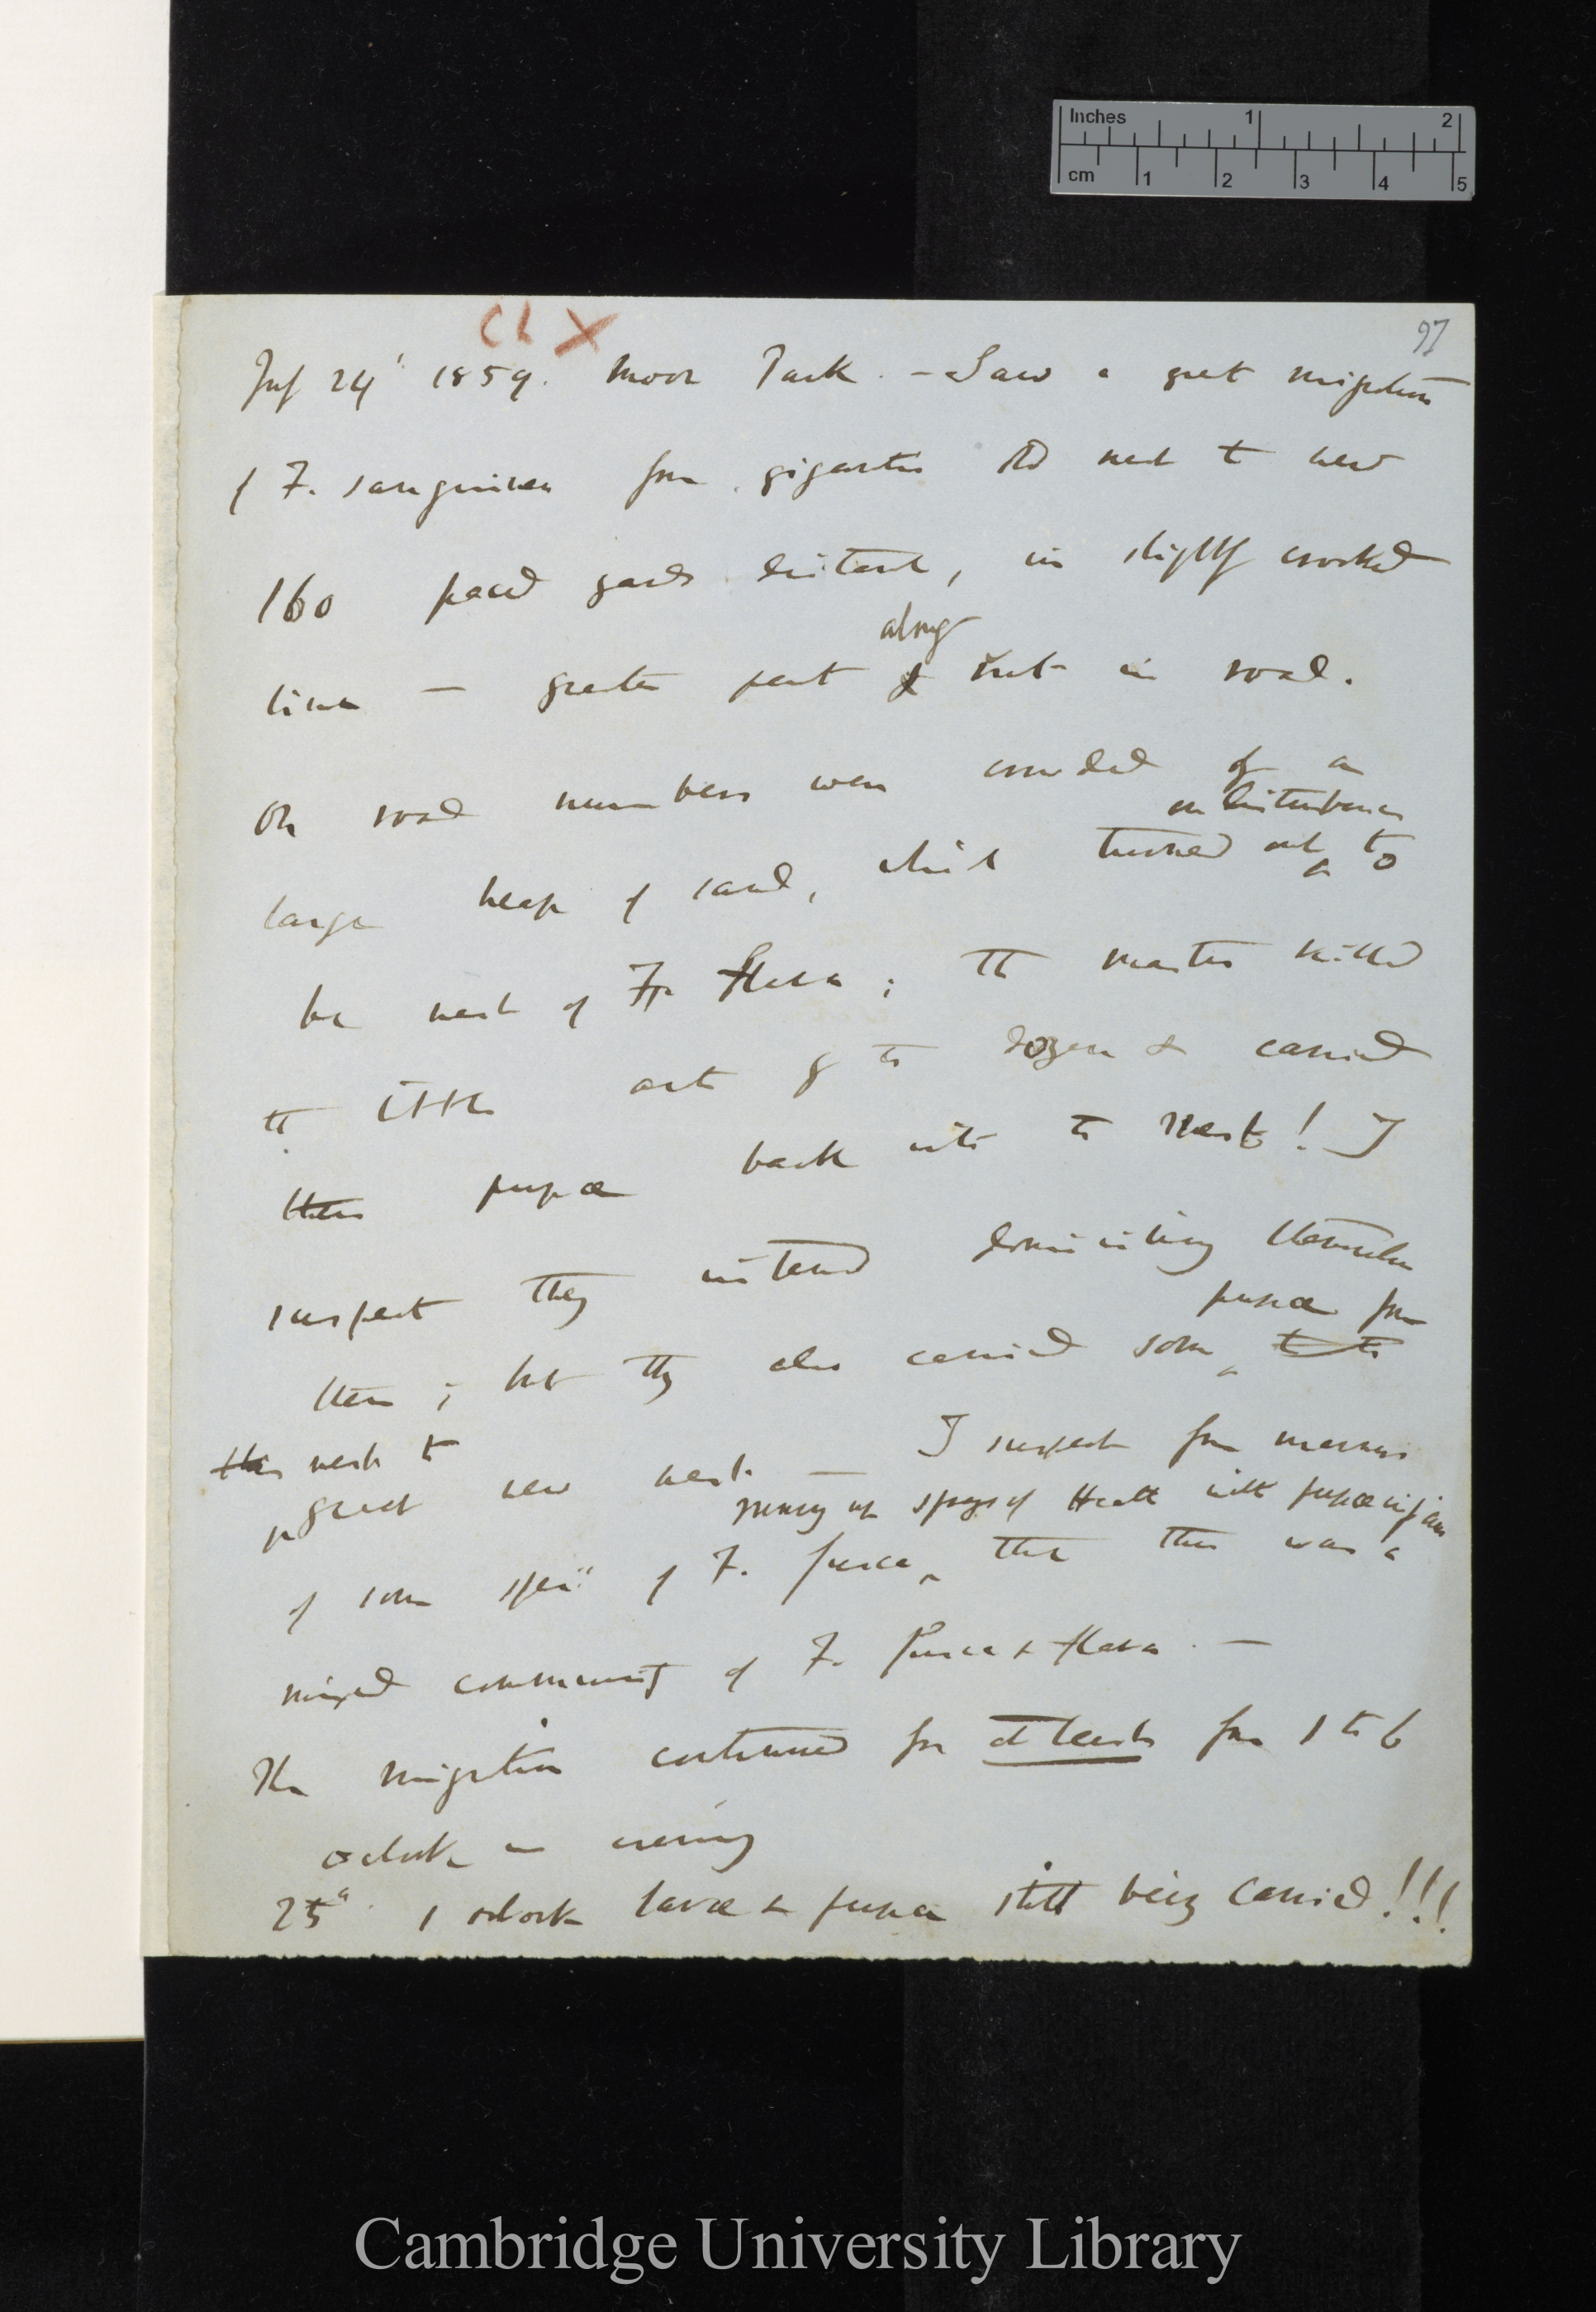 Inches 1 2
cm 1 2 3 4 5
Ch X
97
July 24' 1859. Moor Park. - Saw a great migration
of F. sanguinea from gigantic old nest to new
160 paced yards distant, in slightly crooked
along
line — greater part of rut in road.
On road numbers were crowded of a
on disturbance
large heap of sand, which turned out to
be nest of F. flava; The masters killed
the little ants by the dozen & carried
their pupæ back into the nest! I
suspect they intend domiciling themselves
pupæ from
there; but they also carried some to the
this nest to
great new nest. — I suspect from manners
running up sprigs of Heath with pupæ in jaws
of some speci: of F. fusca, that there was a
mixed community of F. fusca & flava. —
The migration continued for at least from 1 to 6
oclock in evening
25th 1 oclock larvæ & pupæ still being carried!!!
Cambridge University Library